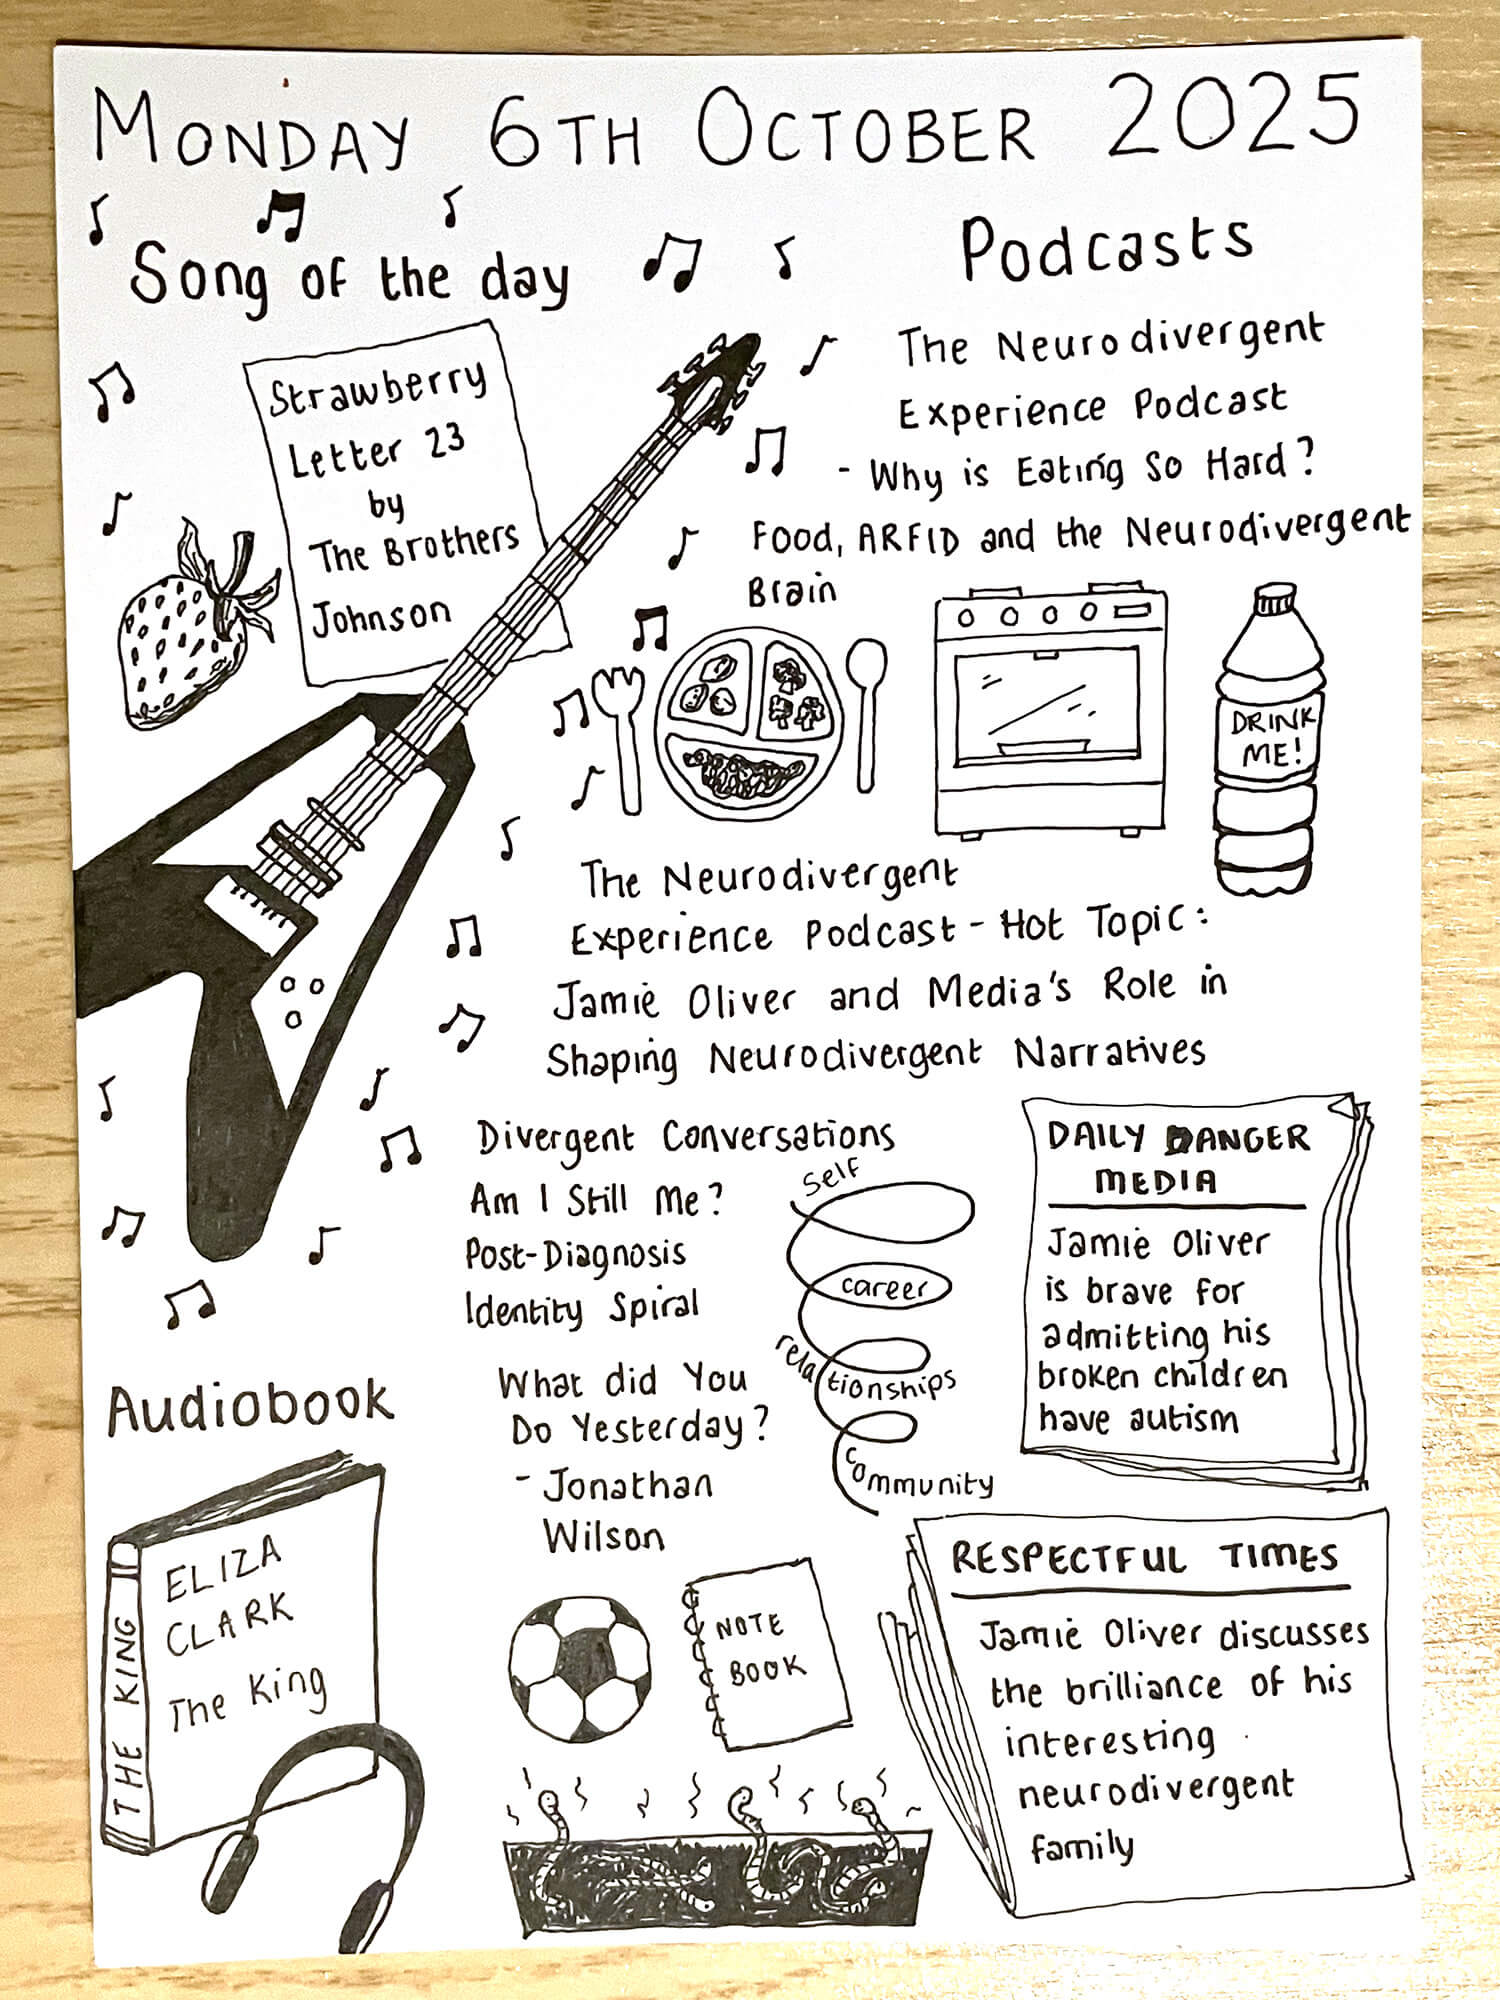 MONDAY 6TH OCTOBER 2025
Song of the day
Strawberry
Letter 23
by
The Brothers
Johnson
Podcasts
The Neurodivergent
Experience Podcast
- Why is Eating So Hard?
Food, ARFID and the Neurodivergent
Brain
DRINK
ME!
The Neurodivergent
Experience Podcast - Hot Topic:
Jamie Oliver and Media's Role in
Shaping Neurodivergent Narratives
Divergent Conversations
Am I Still Me?
Post-Diagnosis
Identity Spiral
self
career
relationships
community
DAILY DANGER
MEDIA
Jamie Oliver
is brave for
admitting his
broken children
have autism
What did You
Do Yesterday?
- Jonathan
Wilson
NOTE
BOOK
RESPECTFUL TIMES
Jamie Oliver discusses
the brilliance of his
interesting
neurodivergent
family
Audiobook
THE KING
ELIZA
CLARK
The King